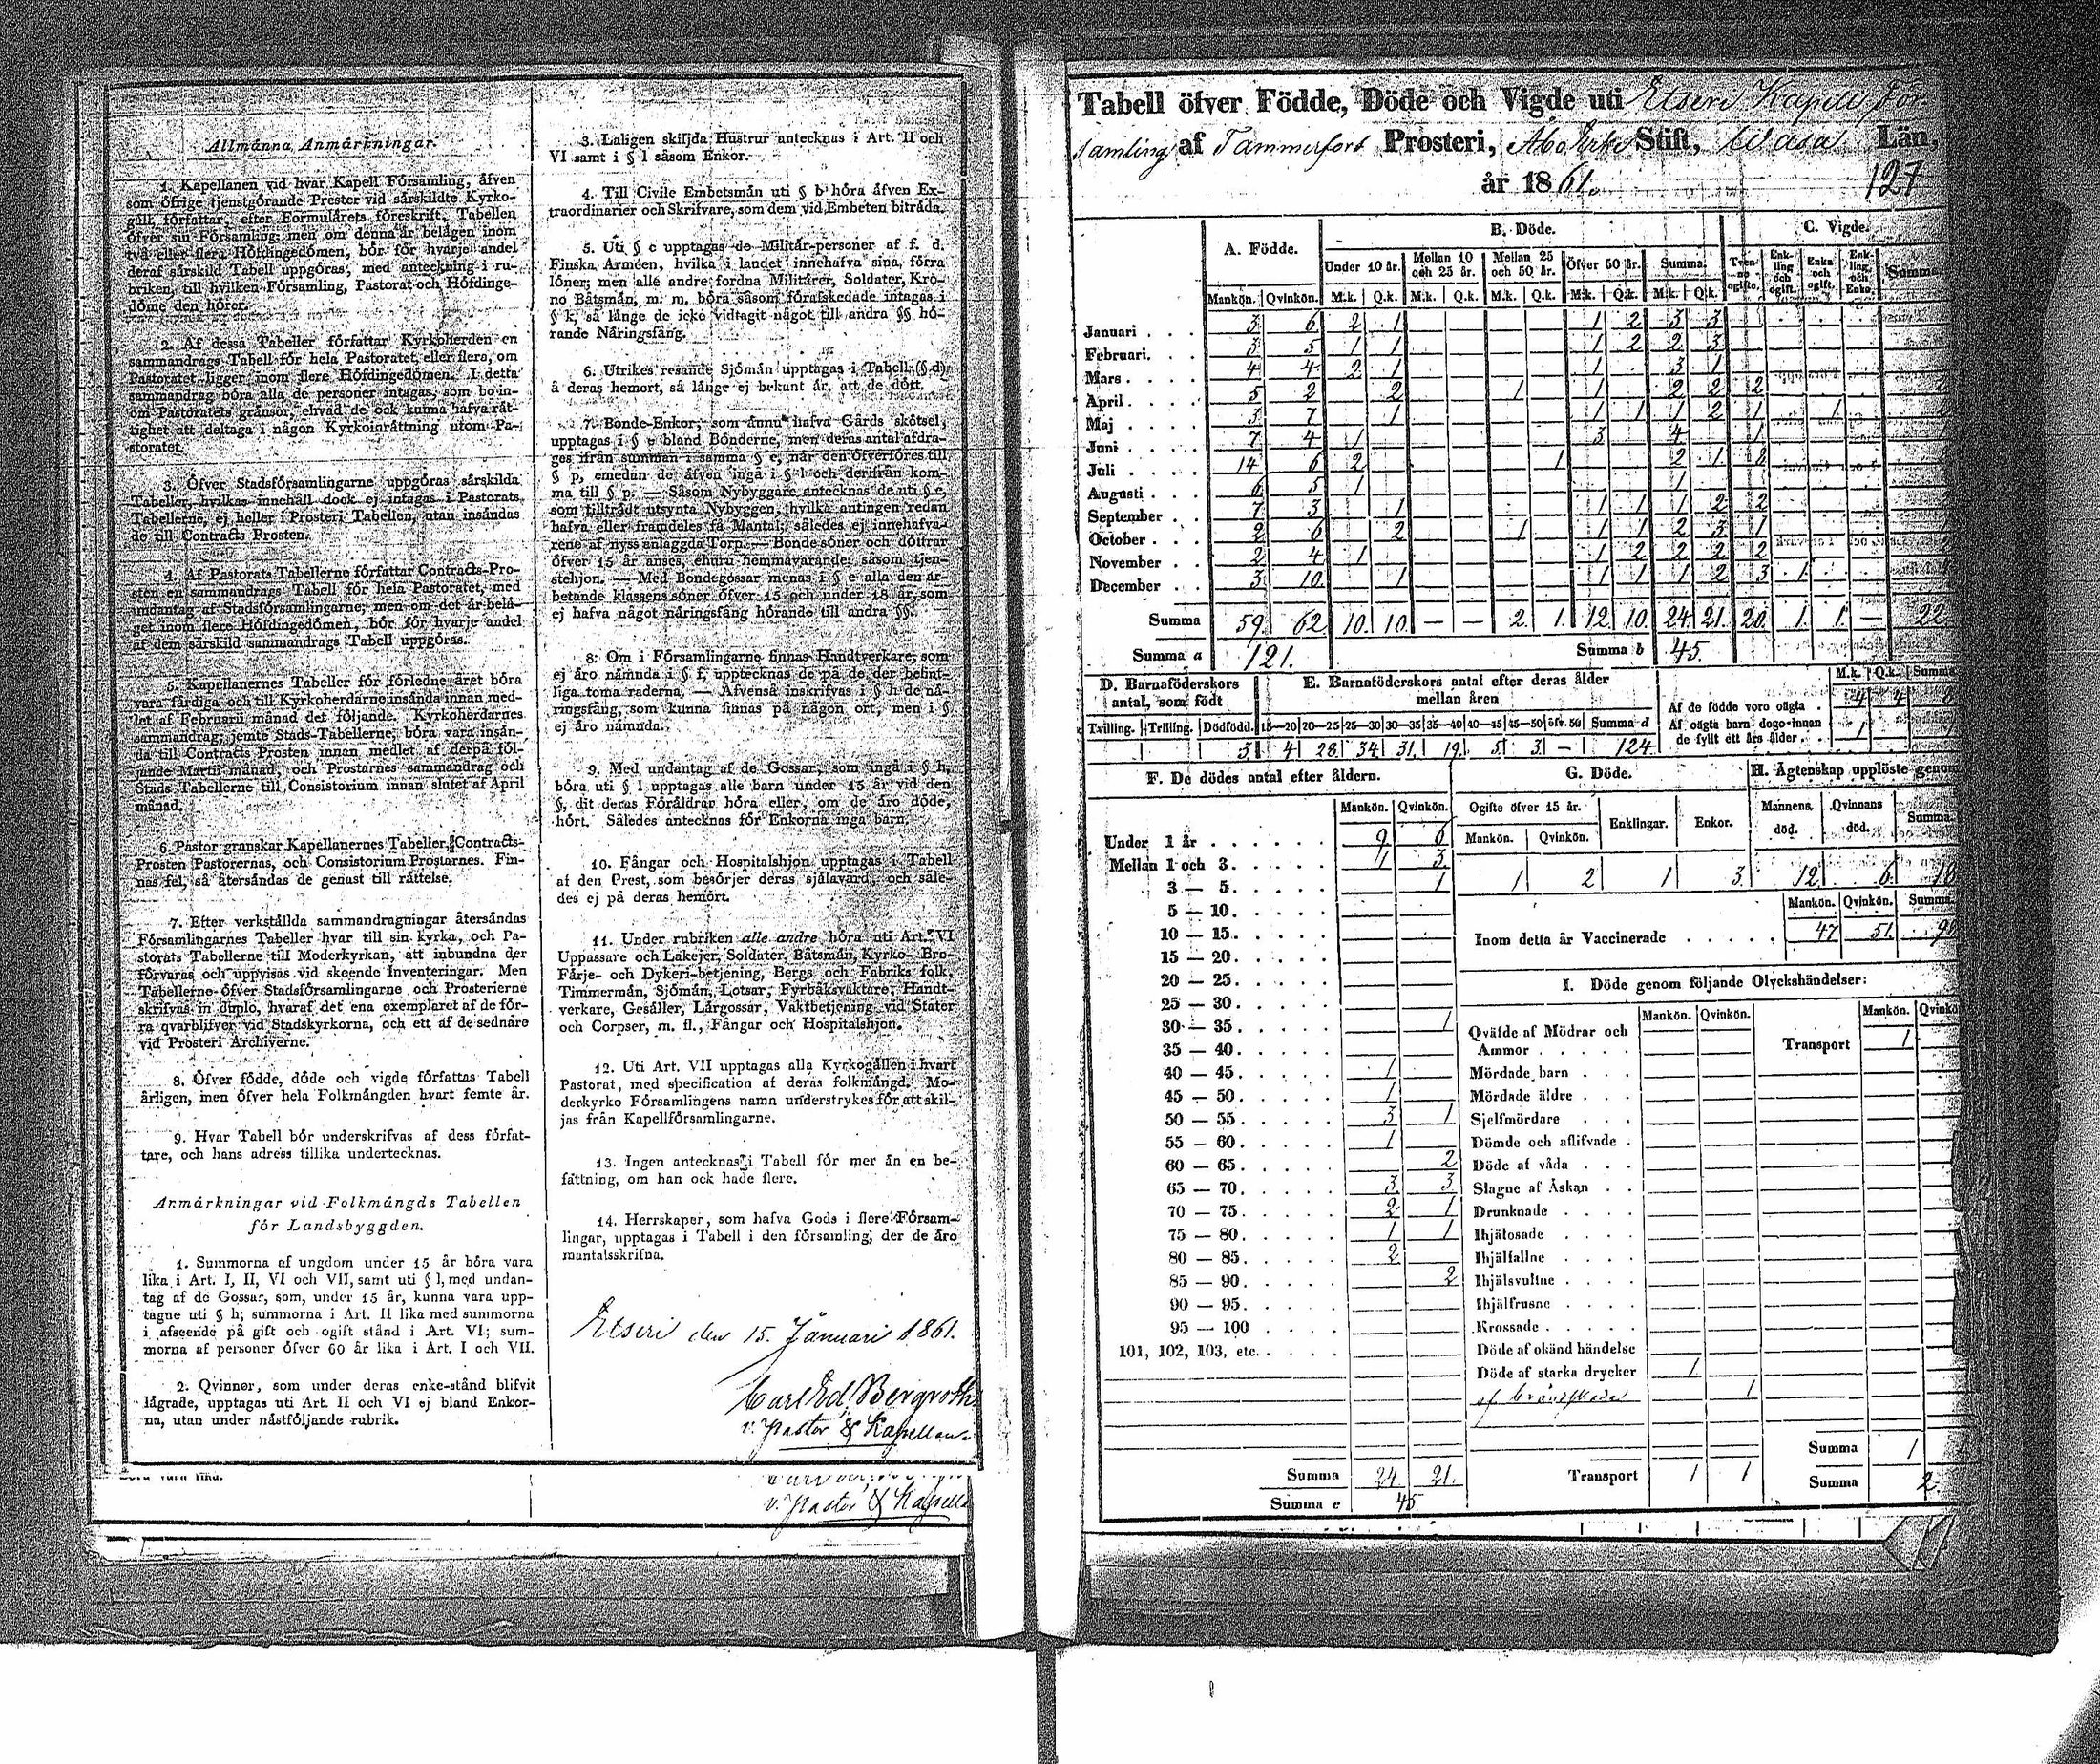 Allmånna Anmårkningar.
1. Kapellanen vid hvar Kapell Fórsamling, åfven
som ófrige tjenstgórande Prester vid sårskildte Kyrko-
gåll, fórfattar, efter Formulårets fóreskrift, Tabellen
ófver sin Fórsamling; men om denna år belågen inom
två eller flera Hófdingedómen, bór fór hvarje andel
deraf sårskild Tabell uppgóras, med anteckning i ru-
briken, till hvilken Fórsamling, Pastorat och Hófdinge-
dóme den hórer.
2. Af dessa Tabeller fórfattar Kyrkoherden en
sammandrags Tabell fór hela Pastoratet, eller flera, om
Pastoratet ligger inom flere Hófdingedómen. I detta
sammandrag bóra alla de personer intagas, som bo in-
om Pastoratets grånsor, ehvad de ock kunna hafva råt-
tighet att deltaga i någon Kyrkoinråttning utom Pa-
storatet.
3. Öfver Stadsfórsamlingarne uppgóras sårskilda
Tabeller, hvilkas innehåll dock ej intagas i Pastorats
Tabellerne, ej heller i Prosteri Tabellen, utan insåndas
de till Contracts Prosten.
4. Af Pastorats Tabellerne fórfattar Contracts-Pro-
sten en sammandrags Tabell fór hela Pastoratet, med
undantag af Stadsfórsamlingarne; men om det år belå-
get inom flere Hófdingedómen, bór fór hvarje andel
af dem sårskild sammandrags Tabell uppgóras.
5. Kapellanernes Tabeller fór fórledne året bóra
vara fårdiga och till Kyrkoherdarne insånda innan med-
let af Februarii månad det fóljande. Kyrkoherdarnes
sammandrag, jemte Stads-Tabellerne, bóra vara insån-
da till Contracts Prosten innan medlet af derpå fól-
jande Martii månad, och Prostarnes sammandrag och
Stads Tabellerne till Consistorium innan slutet af April
månad.
6. Pastor granskar Kapellanernes Tabeller, Contracts-
Prosten Pastorernas, och Consistorium Prostarnes. Fin-
nas fel, så återsåndas de genast till råttelse.
7. Efter verkstållda sammandragningar återsåndas
Fórsamlingarnes Tabeller hvar till sin kyrka, och Pa-
storats Tabellerne till Moderkyrkan, att inbundna der
fórvaras och uppvisas vid skeende Inventeringar. Men
Tabellerne ófver Stadsfórsamlingarne och Prosterierne
skrifvas in duplo, hvaraf det ena exemplaret af de fór-
ra qvarblifver vid Stadskyrkorna, och ett af de sednare
vid Prosteri Archiverne.
8. Öfver fódde, dóde och vigde fórfattas Tabell
årligen, men ófver hela Folkmångden hvart femte år.
9. Hvar Tabell bór underskrifvas af dess fórfat-
tare, och hans adress tillika undertecknas.
Anmårkningar vid Folkmångds Tabellen
fór Landsbyggden.
1. Summorna af ungdom under 15 år bóra vara
lika i Art. I, II, VI och VII, samt uti § l, med undan-
tag af de Gossar, som, under 15 år, kunna vara upp-
tagne uti § h; summorna i Art. II lika med summorna
i afseende på gift och ogift stånd i Art. VI; sum-
morna af personer ófver 60 år lika i Art. I och VII.
2. Qvinnor, som under deras enke-stånd blifvit
lågrade, upptagas uti Art. II och VI ej bland Enkor-
na, utan under nåstfóljande rubrik.
3. Laligen skiljda Hustrur antecknas i Art. II och
VI samt i § l såsom Enkor.
4. Till Civile Embetsmån uti § b hóra åfven Ex-
traordinarier och Skrifvare, som dem vid Embeten bitråda.
5. Uti § c upptagas de Militår-personer af f. d.
Finska Arméen, hvilka i landet innehafva sina fórra
lóner; men alle andre fordna Militårer, Soldater, Kro-
no Båtsmån, m. m. bóra såsom fórafskedade intagas i
§ k, så långe de icke vidtagit något till andra §§ hó-
rande Nåringsfång.
6. Utrikes resande Sjómån upptagas i Tabell (§ d)
å deras hemort, så långe ej bekant år, att de dótt.
7. Bonde-Enkor, som ånnu hafva Gårds skótsel,
upptagas i § e bland Bónderne, men deras antal afdra-
ges ifrån summan i samma § e, når den ófverfóres till
§ p, emedan de åfven ingå i § l och derifrån kom-
ma till § p. — Såsom Nybyggare antecknas de uti § e,
som tilltrådt utsynta Nybyggen, hvilka antingen redan
hafva eller framdeles få Mantal; således ej innehafva-
rene af nyss anlaggda Torp. — Bonde sóner och dóttrar
ófver 15 år anses, ehuru hemmavarande, såsom tjen-
stehjon. — Med Bondegossar menas i § e alla den ar-
betande klassens sóner ófver 15 och under 18 år, som
ej hafva något nåringsfång hórande till andra §§.
8. Om i Fórsamlingarne finnas Handtverkare, som
ej åro nåmnda i § f, upptecknas de på de der befint-
liga toma raderna, — Åfvenså inskrifvas i § h de nå-
ringsfång, som kunna finnas på någon ort, men i §
ej åro nåmnda.
9. Med undantag af de Gossar, som ingå i § h,
bóra uti § l upptagas alle barn under 15 år vid den
§, dit deras Fóråldrar hóra eller, om de åro dóde,
hórt. Således antecknas fór Enkorna inga barn.
10. Fångar och Hospitalshjon upptagas i Tabell
af den Prest, som besórjer deras sjålavård, och såle-
des ej på deras hemort.
11. Under rubriken alle andre hóra uti Art. VI
Uppassare och Lakejer, Soldater, Båtsmån, Kyrko- Bro-
Fårje- och Dykeri-betjening, Bergs och Fabriks folk,
Timmermån, Sjómån, Lotsar, Fyrbåksvaktare, Handt-
verkare, Gesåller, Lårgossar, Vaktbetjening vid Stater
och Corpser, m. fl., Fångar och Hospitalshjon.
12. Uti Art. VII upptagas alla Kyrkogållen i hvart
Pastorat, med specification af deras folkmångd. Mo-
derkyrko Fórsamlingens namn understrykes fór att skil-
jas från Kapellfórsamlingarne.
13. Ingen antecknas i Tabell fór mer ån en be-
fattning, om han ock hade flere.
14. Herrskaper, som hafva Gods i flere Fórsam-
lingar, upptagas i Tabell i den fórsamling, der de åro
mantalsskrifna.
Etseri den 15. Januari 1861.
Carl Ed. Bergroth
v. Pastor & Kapellan
v. Pastor & Kapella
Tabell öfver Födde, Döde och Vigde uti Etseri Kapell För-
samling af Tammerfors Prosteri, Åbo Erke Stift, Wasa Län,
år 1861. 127
A. Födde. B. Döde. C. Vigde.
Under 10 år. Mellan 10 och 25 år. Mellan 25 och 50 år. Öfver 50 år. Summa. Tvenne ogifte. Enkling och ogift. Enka och ogift. Enkling och Enka. Summa
Mankön. Qvinkön. M.k. Q.k. M.k. Q.k. M.k. Q.k. M.k. Q.k. M.k. Q.k.
Januari 3 6 2 1 1 2 3 3
Februari. 3 5 1 1 1 2 2 3
Mars 4 4 2 1 1 3 1
April. 5 2 2 1 1 2 2 2 2
Maj 3 7 1 1 1 1 2 1 1 2
Juni 7 4 1 3 4 1 1
Juli 14 6 2 1 2 1 8
Augusti 6 5 1 1
September 7 3 1 1 1 1 2 2
October 2 6 2 1 1 1 2 3 1
November 2 4 1 1 2 2 2 2
December 3 10 1 1 1 1 2 3 1
Summa 59. 62 10. 10. — — 2. 1. 12. 10. 24. 21. 20. 1. 1. — 22
Summa a 121. Summa b 45.
D. Barnaföderskors antal, som födt
Tvilling. Trilling. Dödfödd.
3
E. Barnaföderskors antal efter deras ålder mellan åren
15—20 20—25 25—30 30—35 35—40 40—45 45—50 öfv. 50 Summa d
4 28 34 31 19 5 3 — 124
M.k. Q.k. Summa
Af de födde voro oägta 4 4 8
Af oägta barn dogo innan de fyllt ett års ålder 1
F. De dödes antal efter åldern.
Mankön. Qvinkön.
Under 1 år 9 6
Mellan 1 och 3. 1 3
3 — 5. 1
5 — 10.
10 — 15.
15 — 20.
20 — 25.
25 — 30.
30 — 35. 1
35 — 40.
40 — 45. 1
45 — 50. 1
50 — 55. 3 1
55 — 60. 1
60 — 65. 2
65 — 70. 3 3
70 — 75. 2 1
75 — 80. 1 1
80 — 85. 2
85 — 90. 2
90 — 95.
95 — 100
101, 102, 103, etc.
Summa 24 21.
Summa e 45
G. Döde.
Ogifte öfver 15 år. Enklingar. Enkor.
Mankön. Qvinkön.
1 2 1 3
H. Ägtenskap upplöste genom
Mannens död. Qvinnans död. Summa
12 6 18
Mankön. Qvinkön. Summa
Inom detta år Vaccinerade 47 51 98
I. Döde genom följande Olyckshändelser:
Mankön. Qvinkön. Mankön. Qvinkö
Qväfde af Mödrar och
Ammor Transport 1
Mördade barn
Mördade äldre
Sjelfmördare
Dömde och aflifvade
Döde af våda
Slagne af Åskan
Drunknade
Ihjälosade
Ihjälfallne
Ihjälsvultne
Ihjälfrusne
Krossade
Döde af okänd händelse
Döde af starka drycker 1
af brännskada 1
Summa 1 1
Transport 1 1 Summa 2